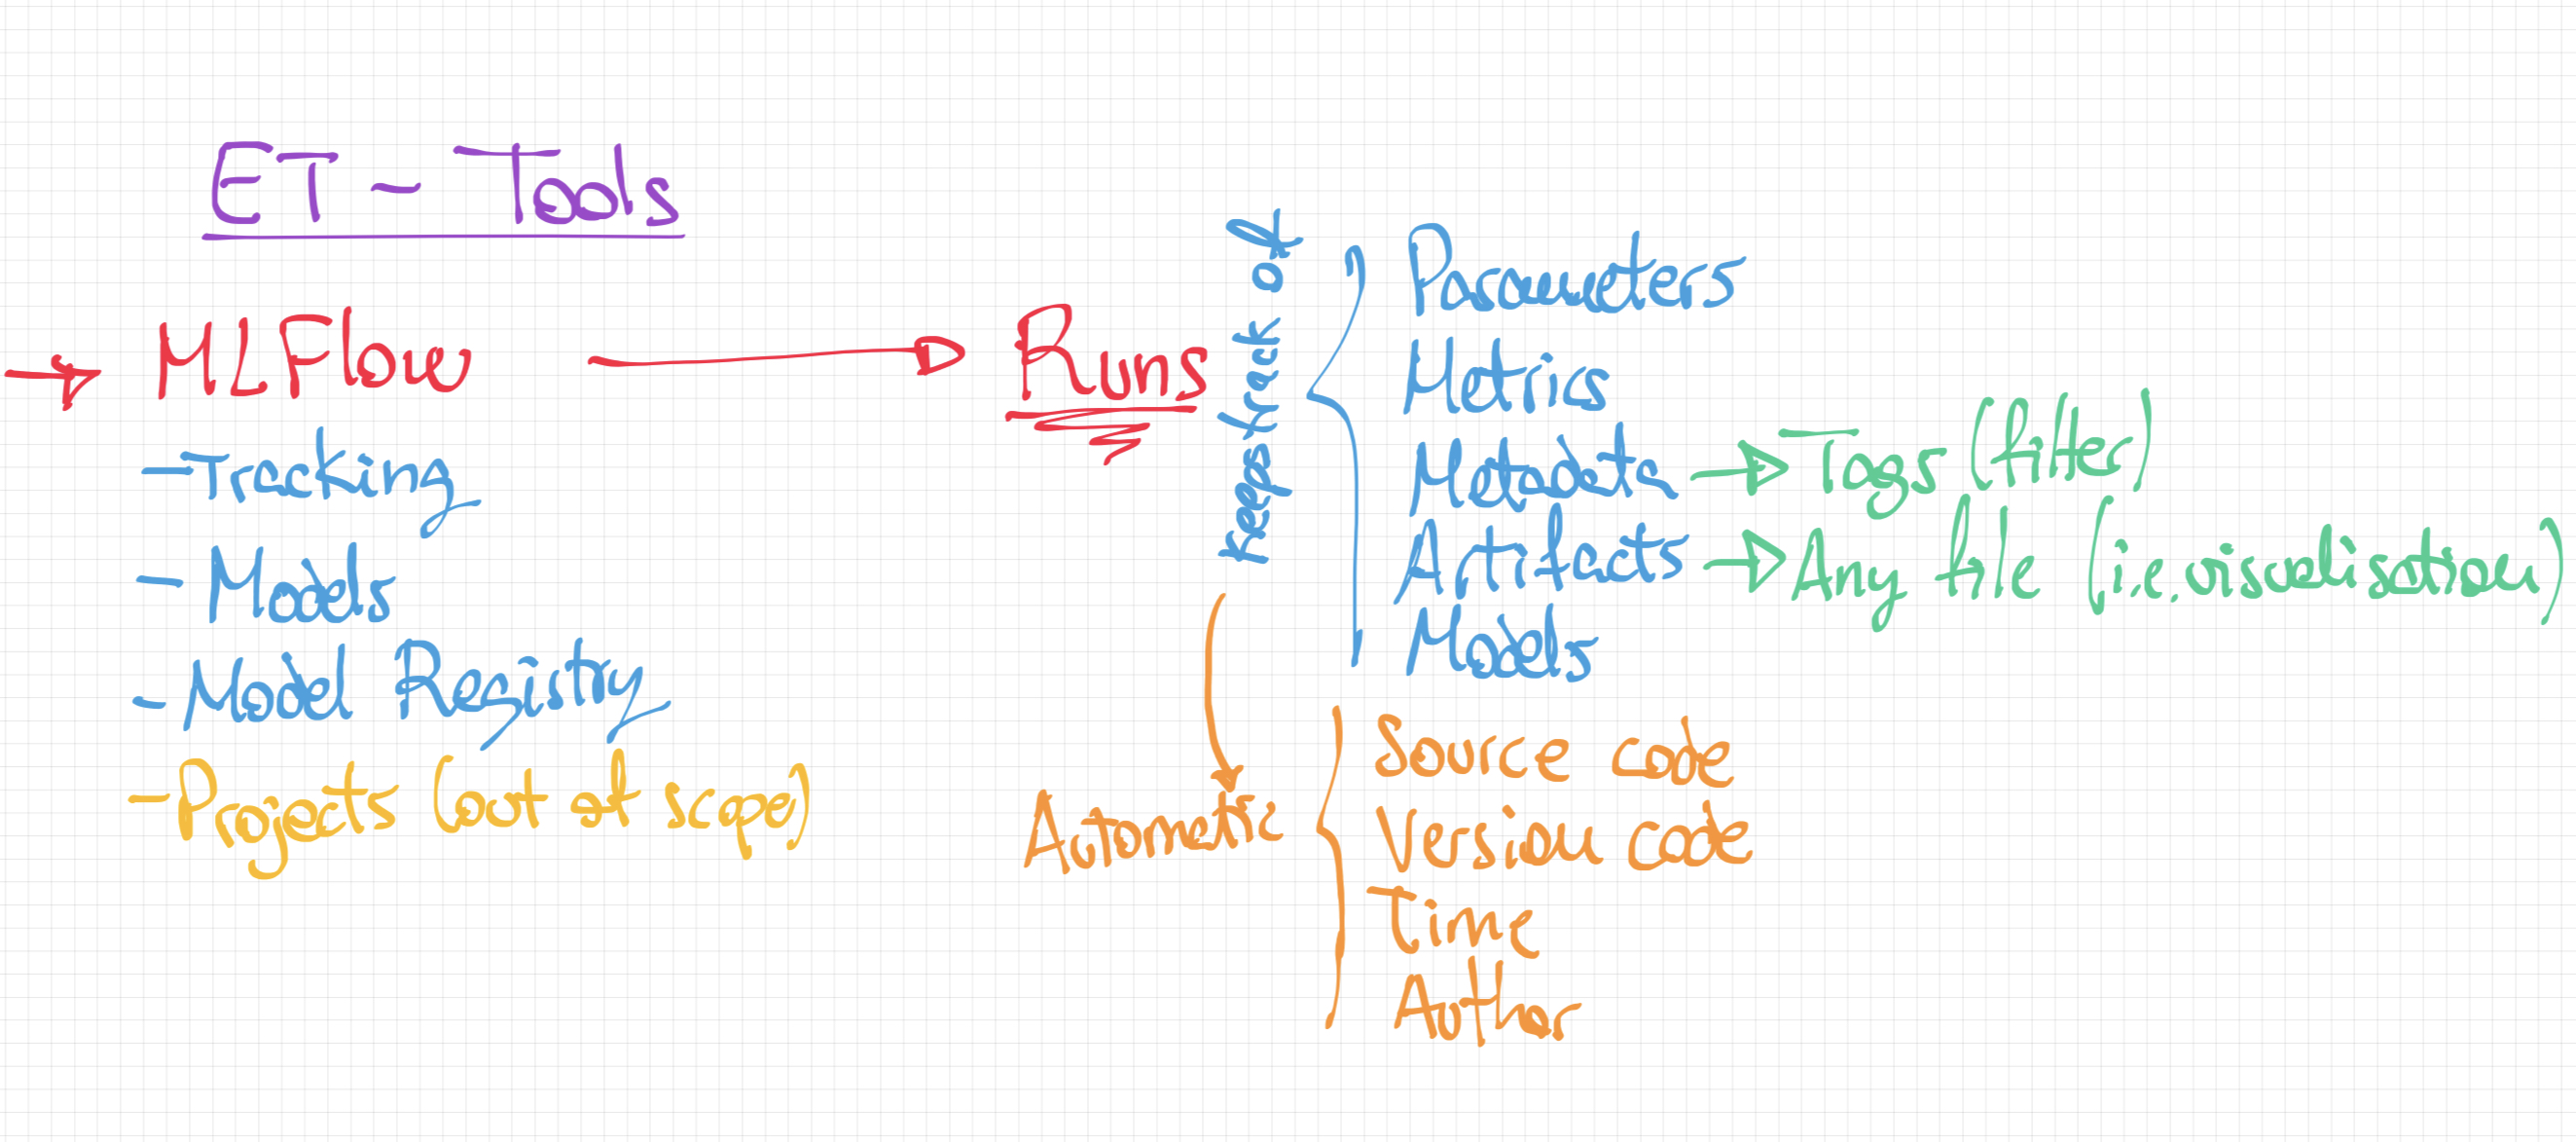 ET - Tools
MLFlow
-Tracking
- Models
- Model Registry
- Projects (out of scope)
Runs
keeps track of
Parameters
Metrics
Metadata
Tags (filter)
Artifacts
Any file (i.e. visualisation)
Models
Automatic
Source code
Version code
Time
Author